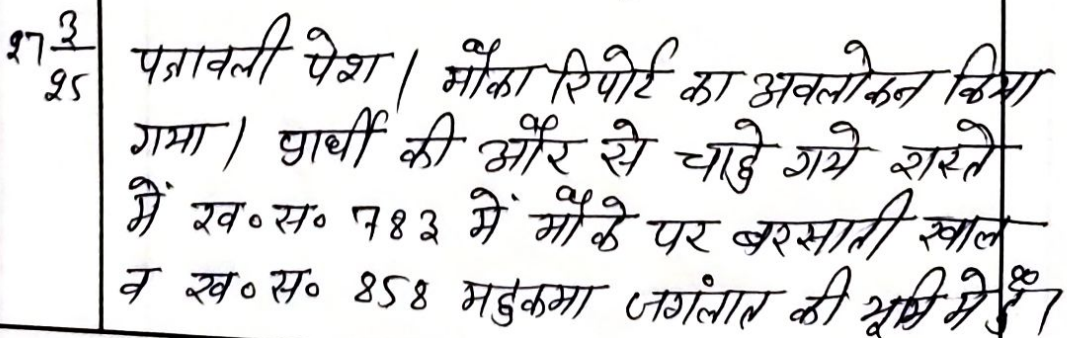 27 3/25
पत्रावली पेश। मौका रिपोर्ट का अवलोकन किया
गया। प्रार्थी की और से चाहे गये रास्ते
में ख॰स॰ 783 में मौके पर बरसाती खाल
व ख॰स॰ 858 महुकमा जगंलात की भूमि मे है।